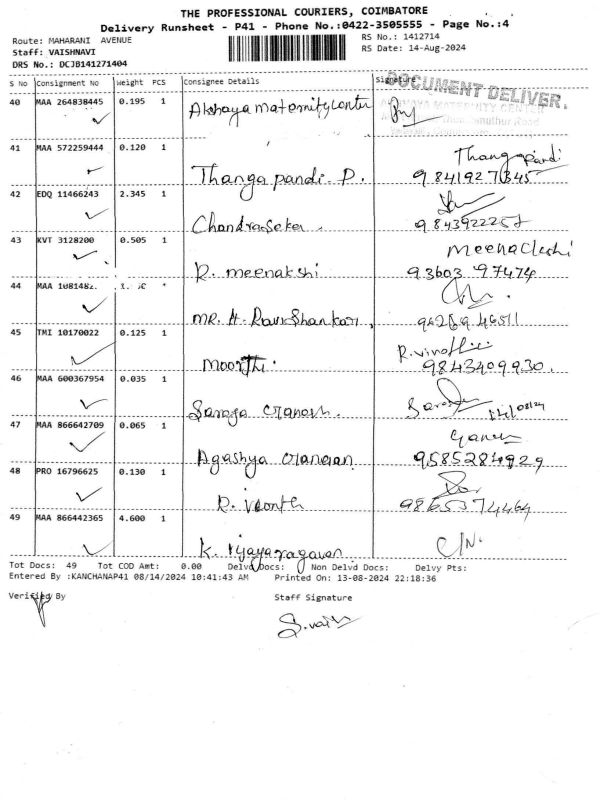 THE PROFESSIONAL COURIERS, COIMBATORE
Delivery Runsheet - P41 - Phone No.:0422-3505555 - Page No.:4
Route: MAHARANI AVENUE RS No.: 1412714
Staff: VAISHNAVI RS Date: 14-Aug-2024
DRS No.: DCJB141271404
S No Consignment No Weight PCS Consignee Details Signature
DOCUMENT DELIVER.
40 MAA 264838445 0.195 1 Akshaya maternity center
MATERNITY CENTER
41 MAA 572259444 0.120 1 Thangapandi. P. Thangapandi
9841927845
42 EDQ 11466243 2.345 1 Chandraseker
9843922257
43 KVT 3128200 0.505 1 R. meenakshi Meenackshi
93603 97474
44 MAA
MR. A. Ravishankar,
96289 46511
45 TMI 10170022 0.125 1 Moorthi R. vinoth
9843409930.
46 MAA 600367954 0.035 1 Saroja Ganesh.
47 MAA 866642709 0.065 1 Agashya Ganesh
9585284929
48 PRO 16796625 0.130 1 R. Vsonth
9865374464
49 MAA 866442365 4.600 1 K. Vijayaragavan C/N.
Tot Docs: 49 Tot COD Amt: 0.00 Delvd Docs: Non Delvd Docs: Delvy Pts:
Entered By :KANCHANAP41 08/14/2024 10:41:43 AM Printed On: 13-08-2024 22:18:36
Verified By Staff Signature
S. vaish